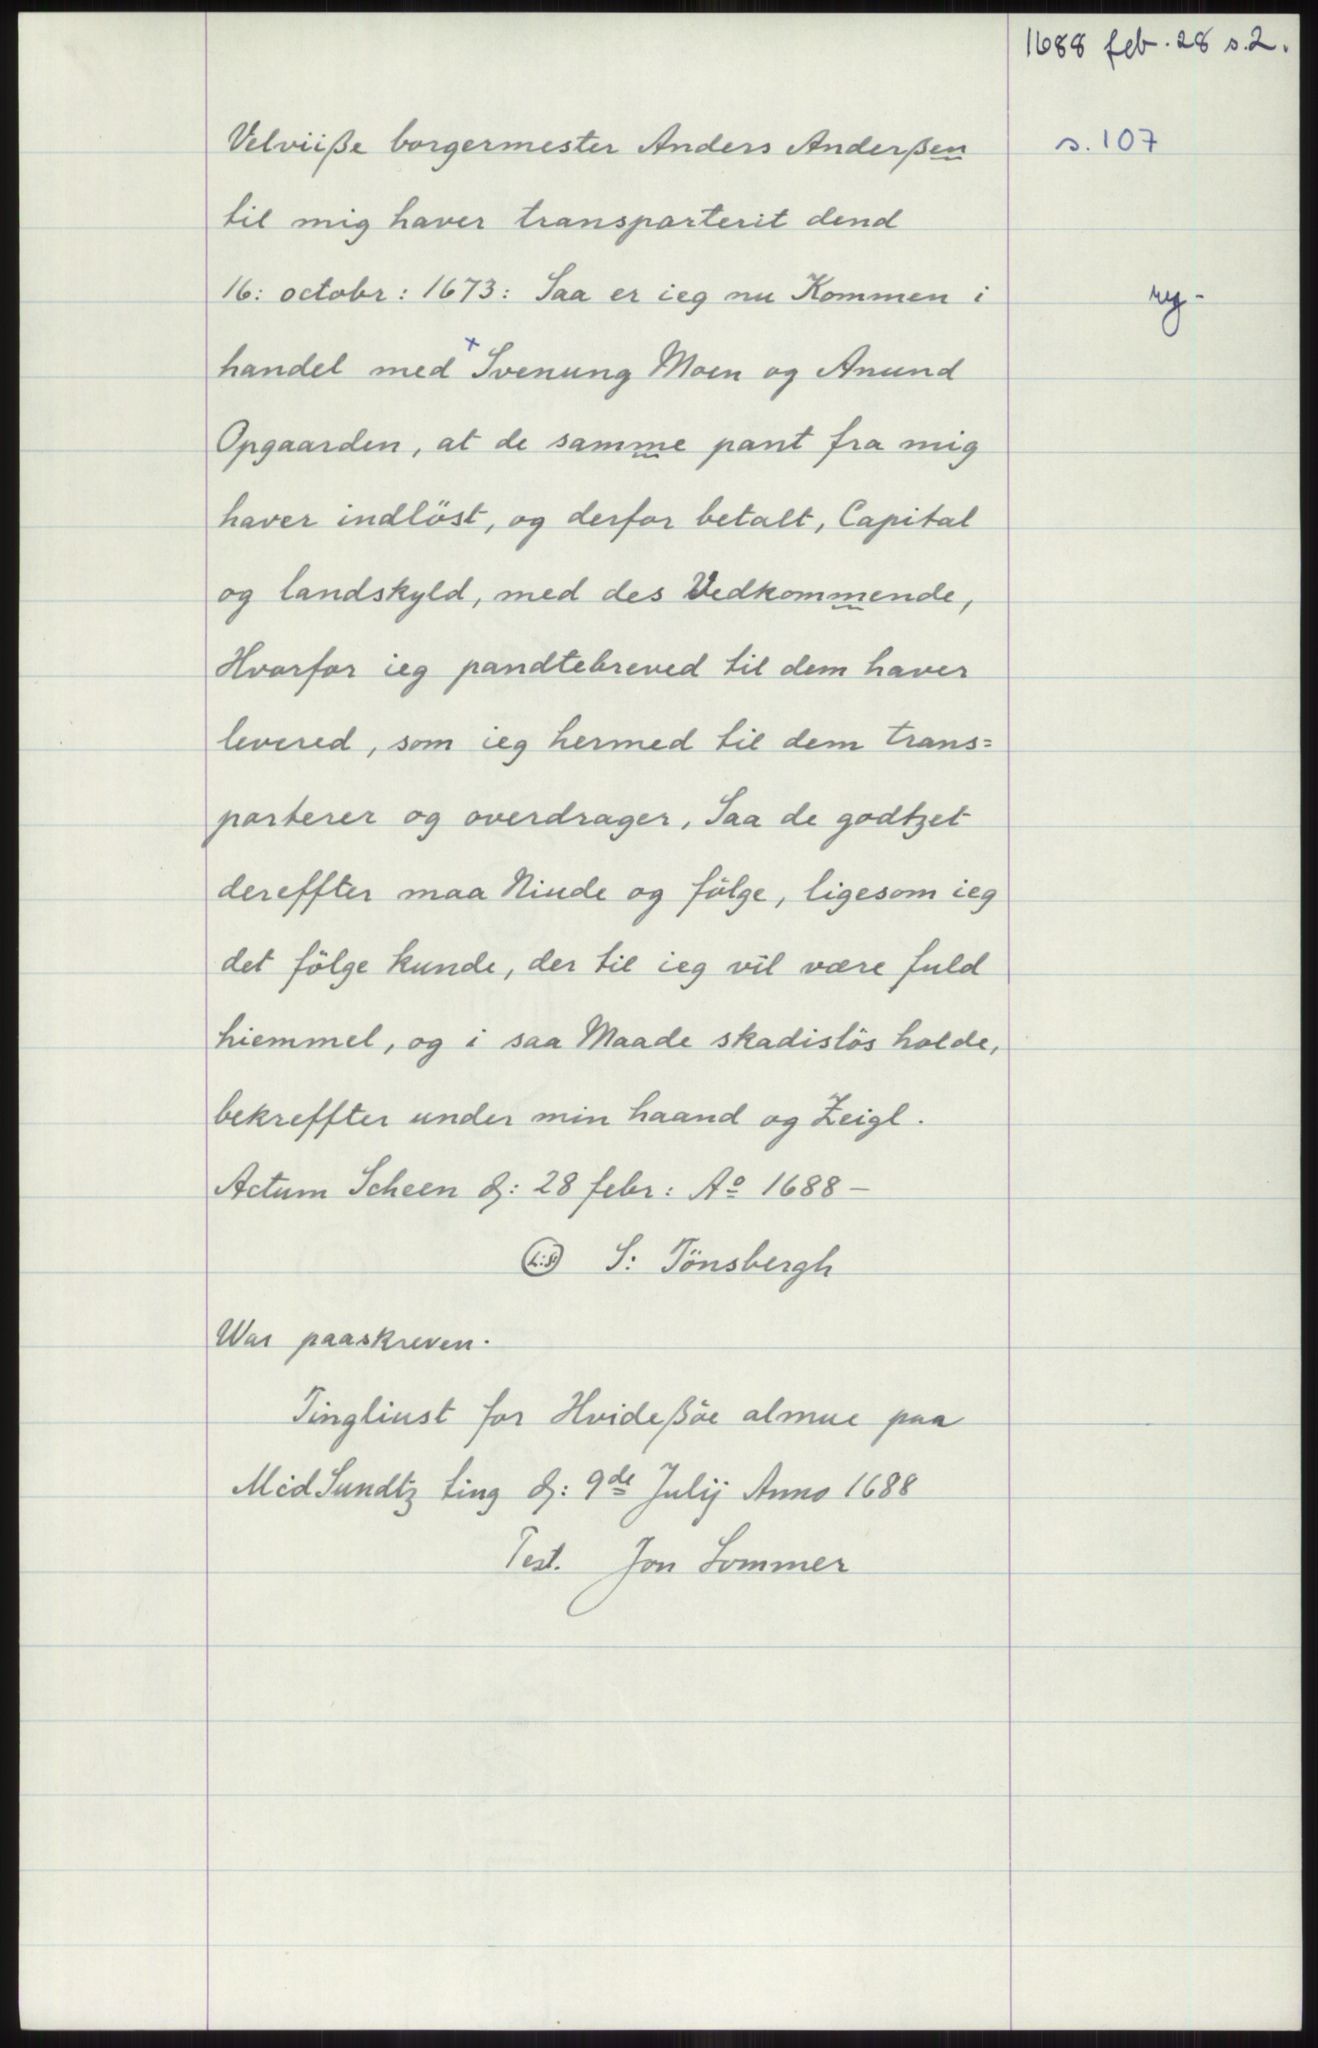 1688 feb. 28 s.2.
Velviiße borgermester Anders Anderßen s. 107
til mig haver transporterit dend
16: octobr: 1673: Saa er ieg nu Kommen i
handel med x Svenung Moen og Anund
Opgaarden, at de samme pant fra mig
haver indlöst, og derfor betalt, Capital
og landskyld, med des Vedkommende,
Hvorfor ieg pandtebreved til dem haver
levered, som ieg hermed til dem trans=
porterer og overdrager, Saa de godtzet
dereffter maa Niude og fölge, ligesom ieg
det fölge kunde, der til ieg vil være fuld
hiemmel, og i saa Maade skadislös holde,
bekreffter under min haand og Zeigl.
Actum Scheen d: 28 febr: Aº 1688 –
L:S: S: Tönsbergh
War paaskreven.
Tingliust for Hvideßöe almue paa
MidSundtz ting d: 9de Julij Anno 1688
Test. Jon Sommer